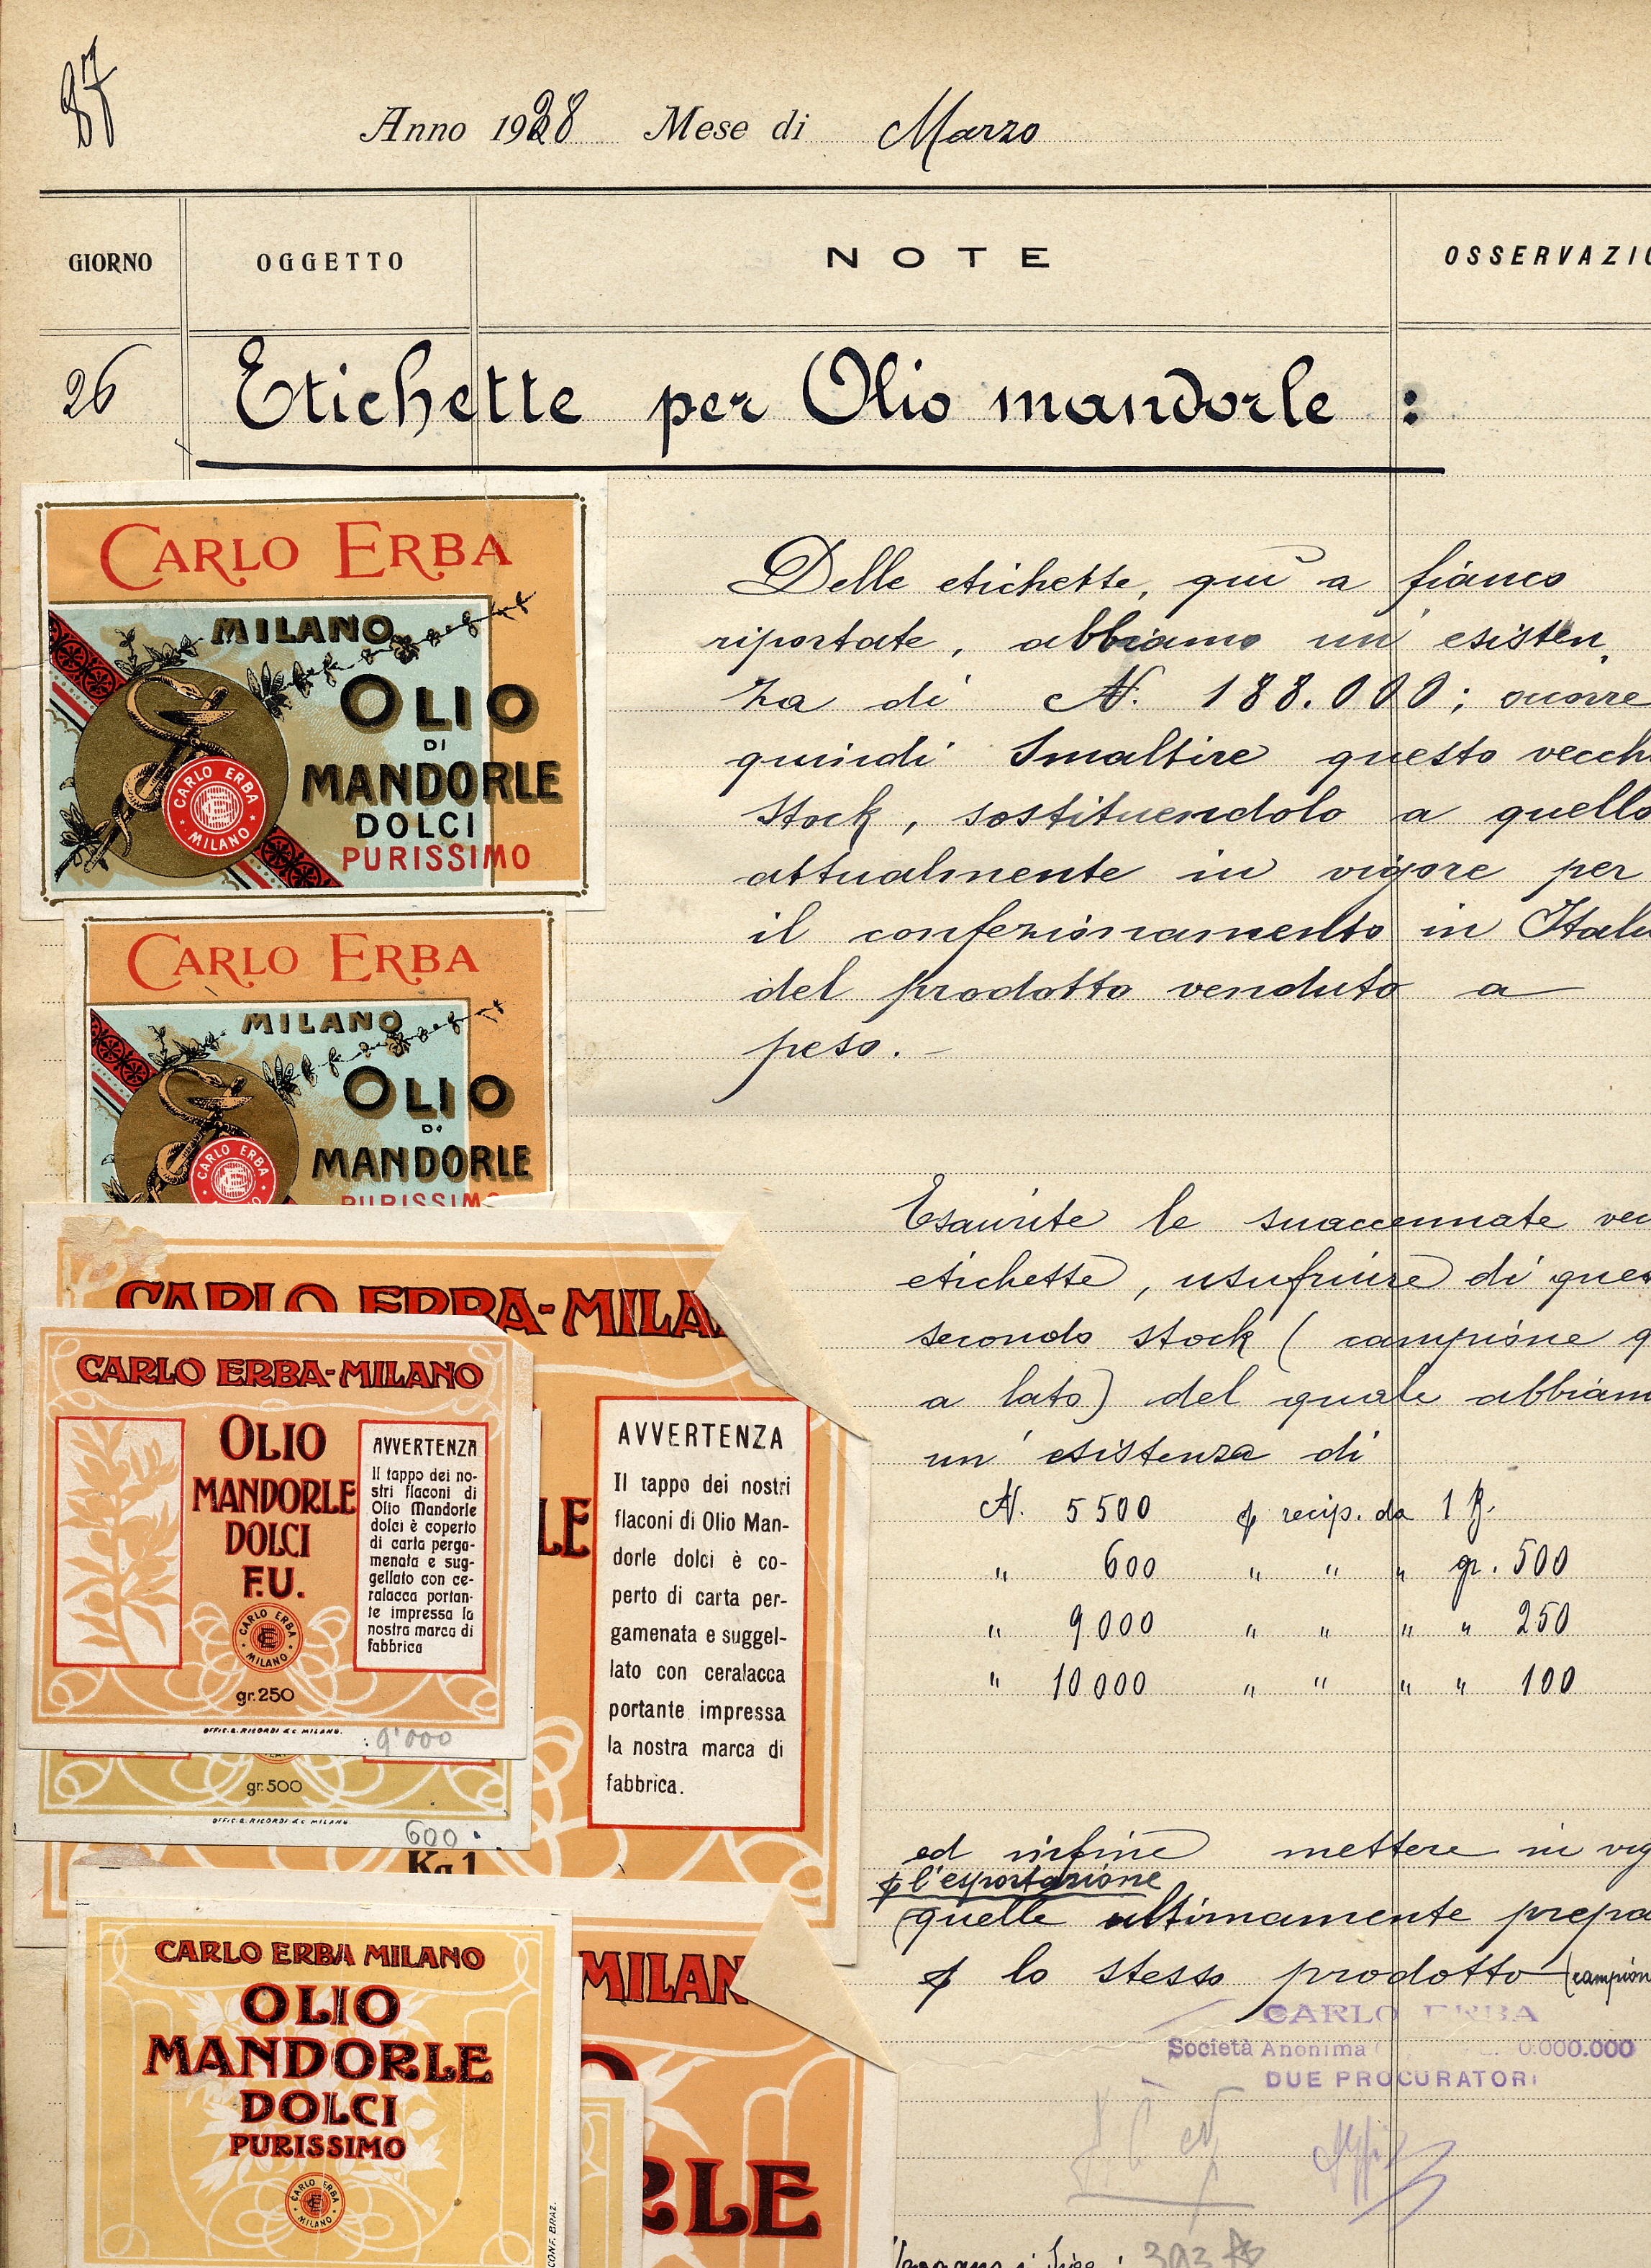 87
Anno 1928 Mese di Marzo
GIORNO OGGETTO NOTE OSSERVAZIO
26 Etichette per Olio mandorle :
CARLO ERBA
MILANO
OLIO
DI
MANDORLE
DOLCI
PURISSIMO
CARLO ERBA
MILANO
CARLO ERBA
MILANO
OLIO
DI
MANDORLE
PURISSIMO
CARLO ERBA
Delle etichette, quì a fianco
riportate, abbiamo un' esisten
za di N. 188.000; ocorre
quindi smaltire questo vecch
stock, sostituendolo a quello
attualmente in vigore per
il confezionamento in Italia
del prodotto venduto a
peso. -
CARLO ERBA-MILA
AVVERTENZA
Il tappo dei nostri
flaconi di Olio Man-
dorle dolci è co-
perto di carta per-
gamenata e suggel-
lato con ceralacca
portante impressa
la nostra marca di
fabbrica.
LE
Kg 1
CARLO ERBA-MILANO
OLIO
MANDORLE
DOLCI
F.U.
CARLO ERBA
MILANO
gr. 250
AVVERTENZA
Il tappo dei no-
stri flaconi di
Olio Mandorle
dolci è coperto
di carta perga-
menata e sug-
gellato con ce-
ralacca portan-
te impressa la
nostra marca di
fabbrica
OFFIC. G. RICORDI & C. MILANO.
9'000
gr. 500
OFFIC. G. RICORDI & C. MILANO.
600
Esaurite le suaccennate vec
etichette, usufruire di ques
secondo stock ( campione q
a lato) del quale abbiam
un' esistenza di
N. 5500 p recip. da 1 K.
" 600 " " " gr. 500
" 9000 " " " " 250
" 10000 " " " " 100
ed infine mettere in vig
p l'esportazione
quelle ultimamente prepa
p lo stesso prodotto (campion
CARLO ERBA
Società Anonima 0.000.000
DUE PROCURATORI
CARLO ERBA MILANO
OLIO
MANDORLE
DOLCI
PURISSIMO
CARLO ERBA
MILANO
CONF. BRAZ.
MILAN
RLE
303